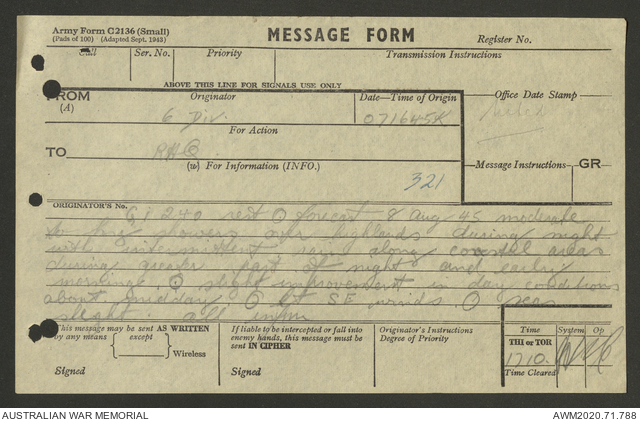 Army Form C2136 (Small)
(Pads of 100) (Adapted Sept. 1943)
MESSAGE FORM
Register No.
Call
Ser. No.
Priority
Transmission Instructions
ABOVE THIS LINE FOR SIGNALS USE ONLY
FROM
(A)
Originator
Date—Time of Origin
Office Date Stamp
6 Div.
071645K
For Action
TO
RHQ
(w) For Information (INFO.)
Message Instructions
GR
321
ORIGINATOR'S No.
GI 240 rest forecast 8 Aug 45 moderate
to hvy showers over highlands during night
with intermittent rain along coastal areas
during greater part of night and early
morning slight improvement in day conditions
about midday lt SE winds seas
slight all infm
This message may be sent AS WRITTEN
by any means except
Wireless
Signed
If liable to be intercepted or fall into
enemy hands, this message must be
sent IN CIPHER
Signed
Originator's Instructions
Degree of Priority
Time
System
Op
THI or TOR
1710
Time Cleared
AUSTRALIAN WAR MEMORIAL
AWM2020.71.788